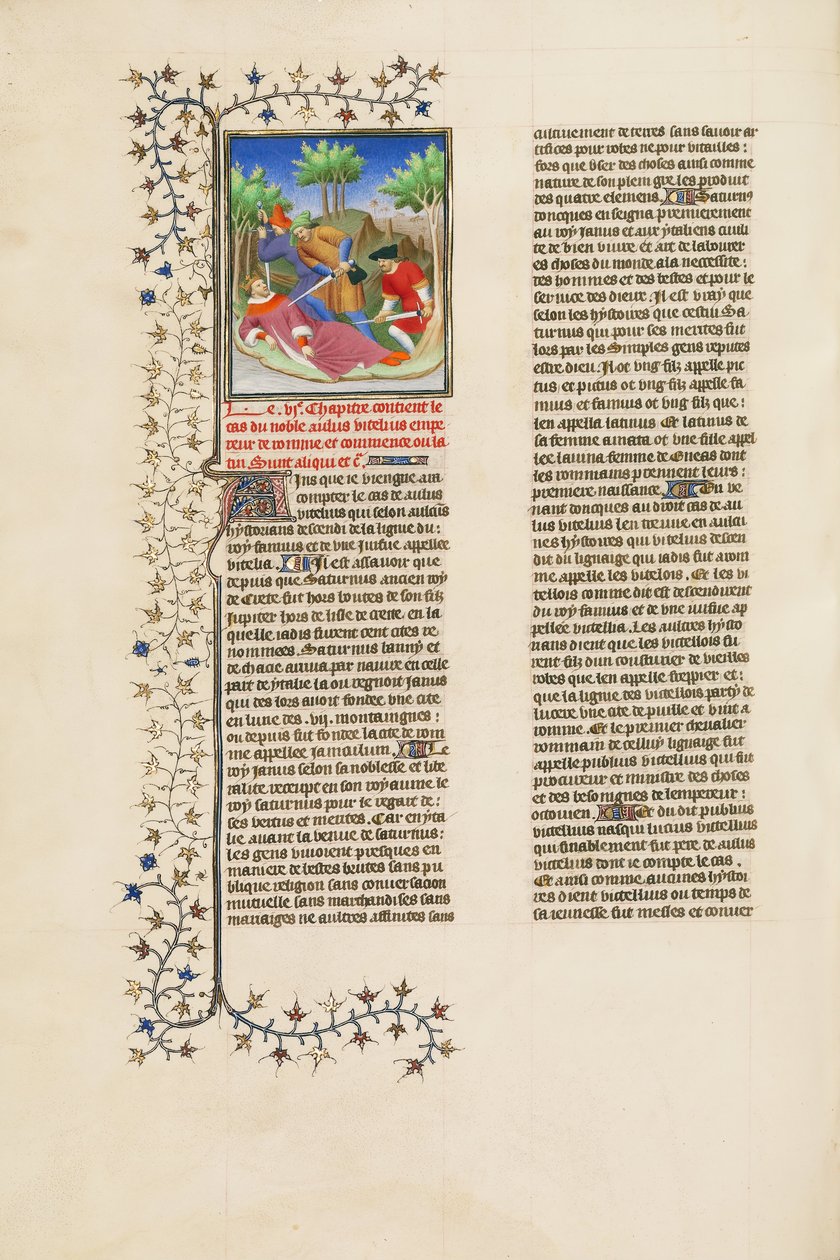 Le .vje. Chapitre contient le
cas du noble aulus vitelius empe
reur de romme. et commence ou la
tin. Sunt aliqui et c̃.
Ains que ie viengne a ra
compter le cas de aulus
vitelius qui selon aulcũs
hystorians descendi de la lignie du:
roy faunus et de vne iuifue appellee
vitelia. Il est assauoir que
depuis que Saturnus ancien roy
de Crete fut hors boutes de son filz
Jupiter hors de lisle de crete. en la
quelle iadis furent cent cites re
nommees. Saturnus banny et
de chacie arriua par nauire en celle
part de ytalie la ou regnoit Janus
qui des lors auoit fondee vne cite
en lune des .vij. montaingnes:
ou depuis fut fondee la cite de rom
me appellee ianiculum. Le
roy Janus selon sa noblesse et libe
ralite receupt en son royaume le
roy saturnus pour le regart de:
ses vertus et merites. Car en yta
lie auant la venue de saturnus:
les gens viuoient presques en
maniere de bestes brutes sans pu
blique religion sans conuersacion
mutuelle sans marchandises sans
mariaiges ne aultres affinites sans
cultiuement de terres sans sauoir ar
tifices pour robes ne pour vitailles:
fors que vser des choses ainsi comme
nature de son plein gre les produit
des quatre elemens. Saturnꝰ
doncques enseigna premierement
au roy ianus et aux ytaliens ciuili
te de bien viure et art de labourer
es choses du monde a la necessite:
des hommes et des bestes et pour le
seruice des dieux. Il est vray que
selon les hystoires que cestui Sa
turnus qui pour ses merites fut
lors par les Simples gens reputes
estre dieu. Il ot vng filz appelle pic
tus et pictus ot vng filz appelle fa
unus et faunus ot vng filz que:
len appella latinus. Et latinus de
sa femme amata ot vne fille appel
lee lauina femme de Eneas dont
les rommains prennent leurs:
premiere naissance. En ve
nant doncques au droit cas de au
lus vitelius len treuue en aulcu
nes hystoires qui vitelius descen
dit du lignaige qui iadis fut a rom
me appelle les vitelois. Et les vi
tellois comme dit est descendirent
du roy faunus et de vne iuifue ap
pellee victellia. Les aultres hysto
rians dient que les victellois fu
rent filz dun cousturier de vieilles
robes que len appelle freppier et:
que la lignie des victellois party de
lucere vne cite de puille et vint a
romme. Et le premier cheualier
rommain de celluy lignaige fut
appelle publius victellius qui fut
procureur et ministre des choses
et des besoingnes de lempereur:
octouien. Et du dit publius
victellius nasqui lucius victellius
qui finablement fut pere de aulus
victelius dont ie compte le cas.
Et ainsi comme aucunes hystoi
res dient victellius ou temps de
sa ieunesse fut mesles et conuer